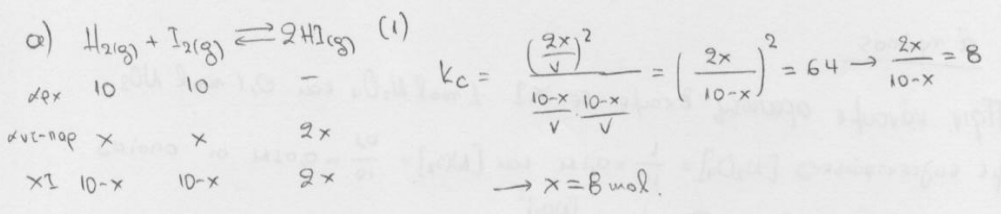 α) H₂(g) + I₂(g) ⇌ 2HI(g) (1)
αρχ 10 10 –
αντ-παρ x x 2x
XI 10-x 10-x 2x
Kc = (2x/V)² / (10-x/V · 10-x/V) = (2x/10-x)² = 64 → 2x/10-x = 8
→ x = 8 mol.